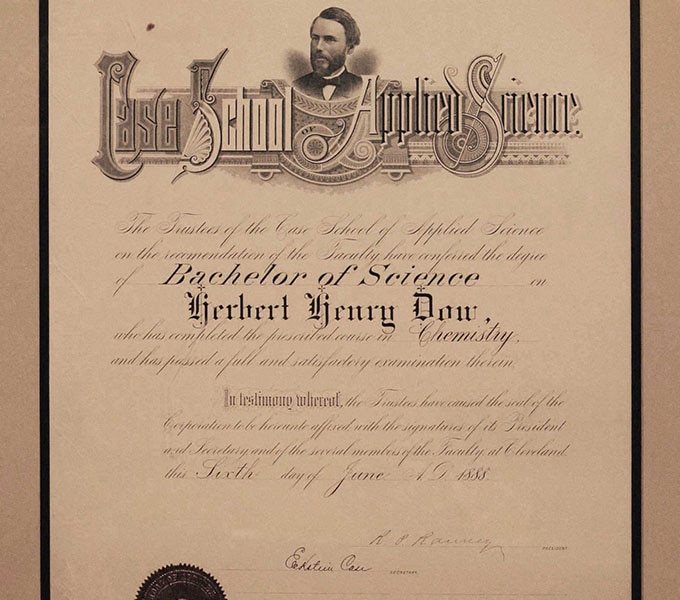 Case School of Applied Science.
The Trustees of the Case School of Applied Science
on the recomendation of the Faculty have conferred the degree
of Bachelor of Science on
Herbert Henry Dow,
who has completed the prescribed course in Chemistry,
and has passed a full and satisfactory examination therein.
In testimony whereof, the Trustees have caused the seal of the
Corporation to be hereunto affixed with the signatures of its President
and Secretary, and of the several members of the Faculty, at Cleveland
this Sixth day of June A.D. 1888.
PRESIDENT
Eckstein Case SECRETARY